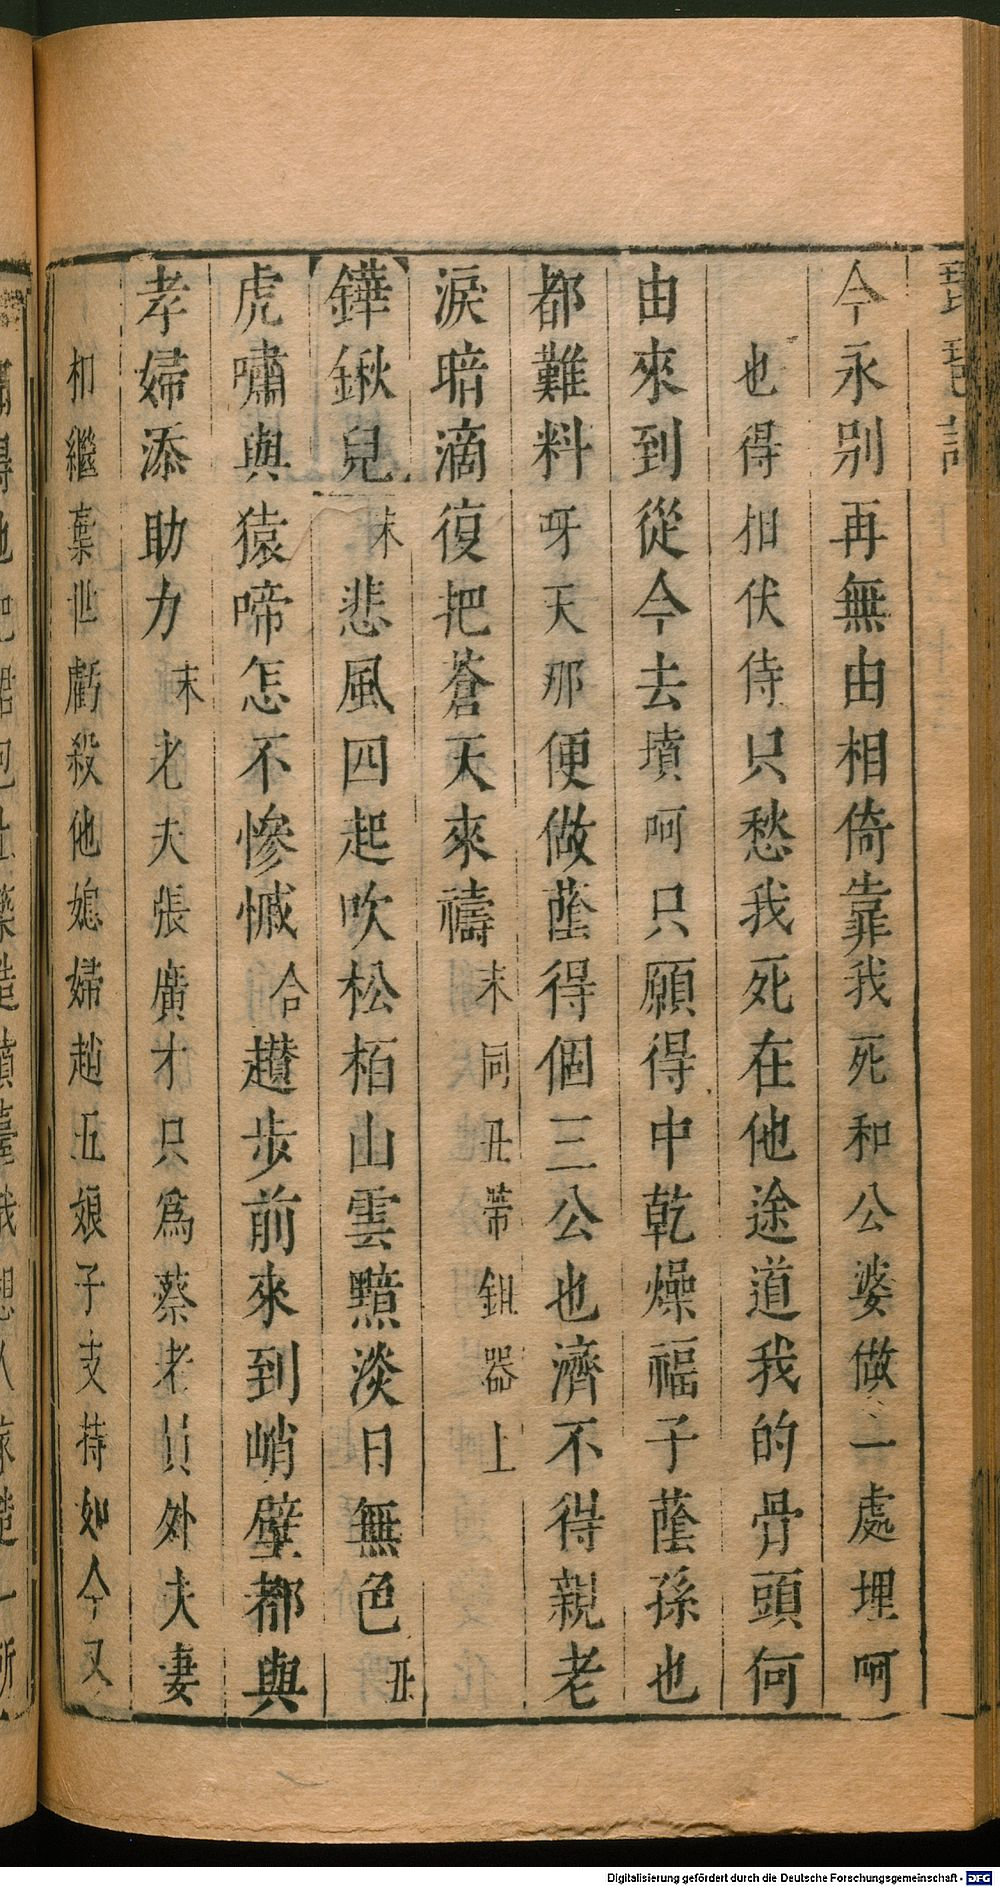 琵琶記
今永別再無由相倚靠我死和公婆做一處埋呵
也得相伏侍只愁我死在他途道我的骨頭何
由來到從今去墳呵只願得中乾燥福子蔭孫也
都難料呀天那便做蔭得個三公也濟不得親老
淚暗滴復把蒼天來禱末同丑帶鉏器上
鏵鍬兒末悲風四起吹松栢山雲黲淡日無色丑
虎嘯與猿啼怎不慘慽合趲步前來到峭壁都與
孝婦添助力末老夫張廣才只爲蔡老員外夫妻
相繼棄世虧殺他媳婦趙五娘子支持如今又
Digitalisierung gefördert durch die Deutsche Forschungsgemeinschaft - DFG